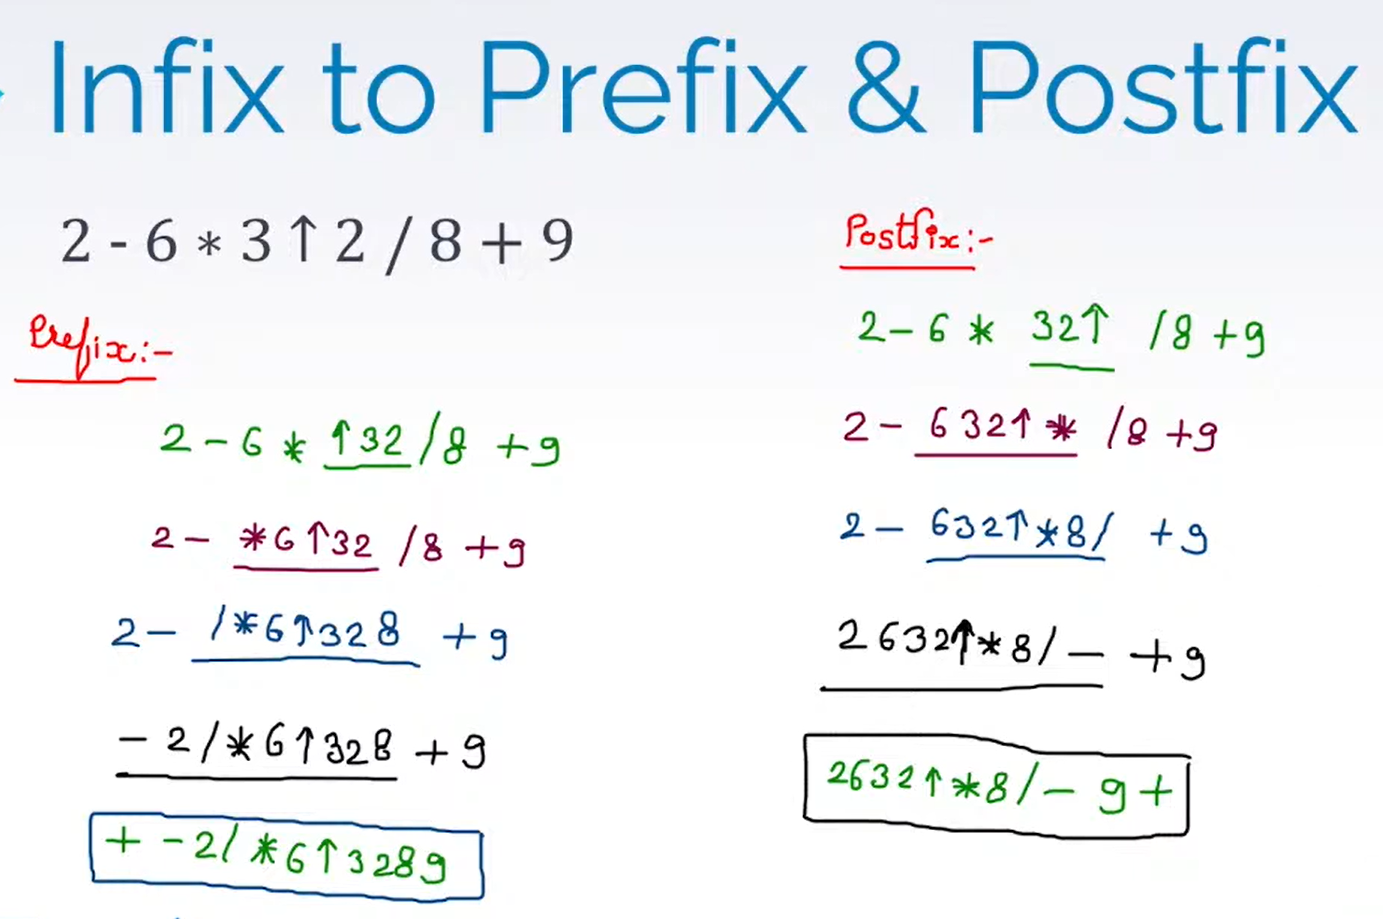 Infix to Prefix & Postfix
2 - 6 * 3 ↑ 2 / 8 + 9
Prefix:-
2 - 6 * ↑32 / 8 + 9
2 - *6↑32 / 8 + 9
2 - /*6↑328 + 9
- 2/*6↑328 + 9
+ -2/ *6↑3289
Postfix:-
2 - 6 * 32↑ /8 + 9
2 - 632↑* /8 + 9
2 - 632↑*8/ + 9
2632↑*8/- + 9
2632↑*8/- 9+